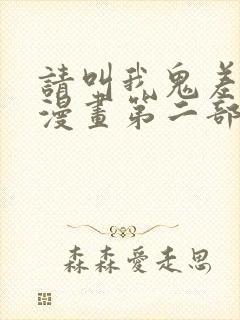 請叫我鬼差
漫畫第二部
森森愛走思